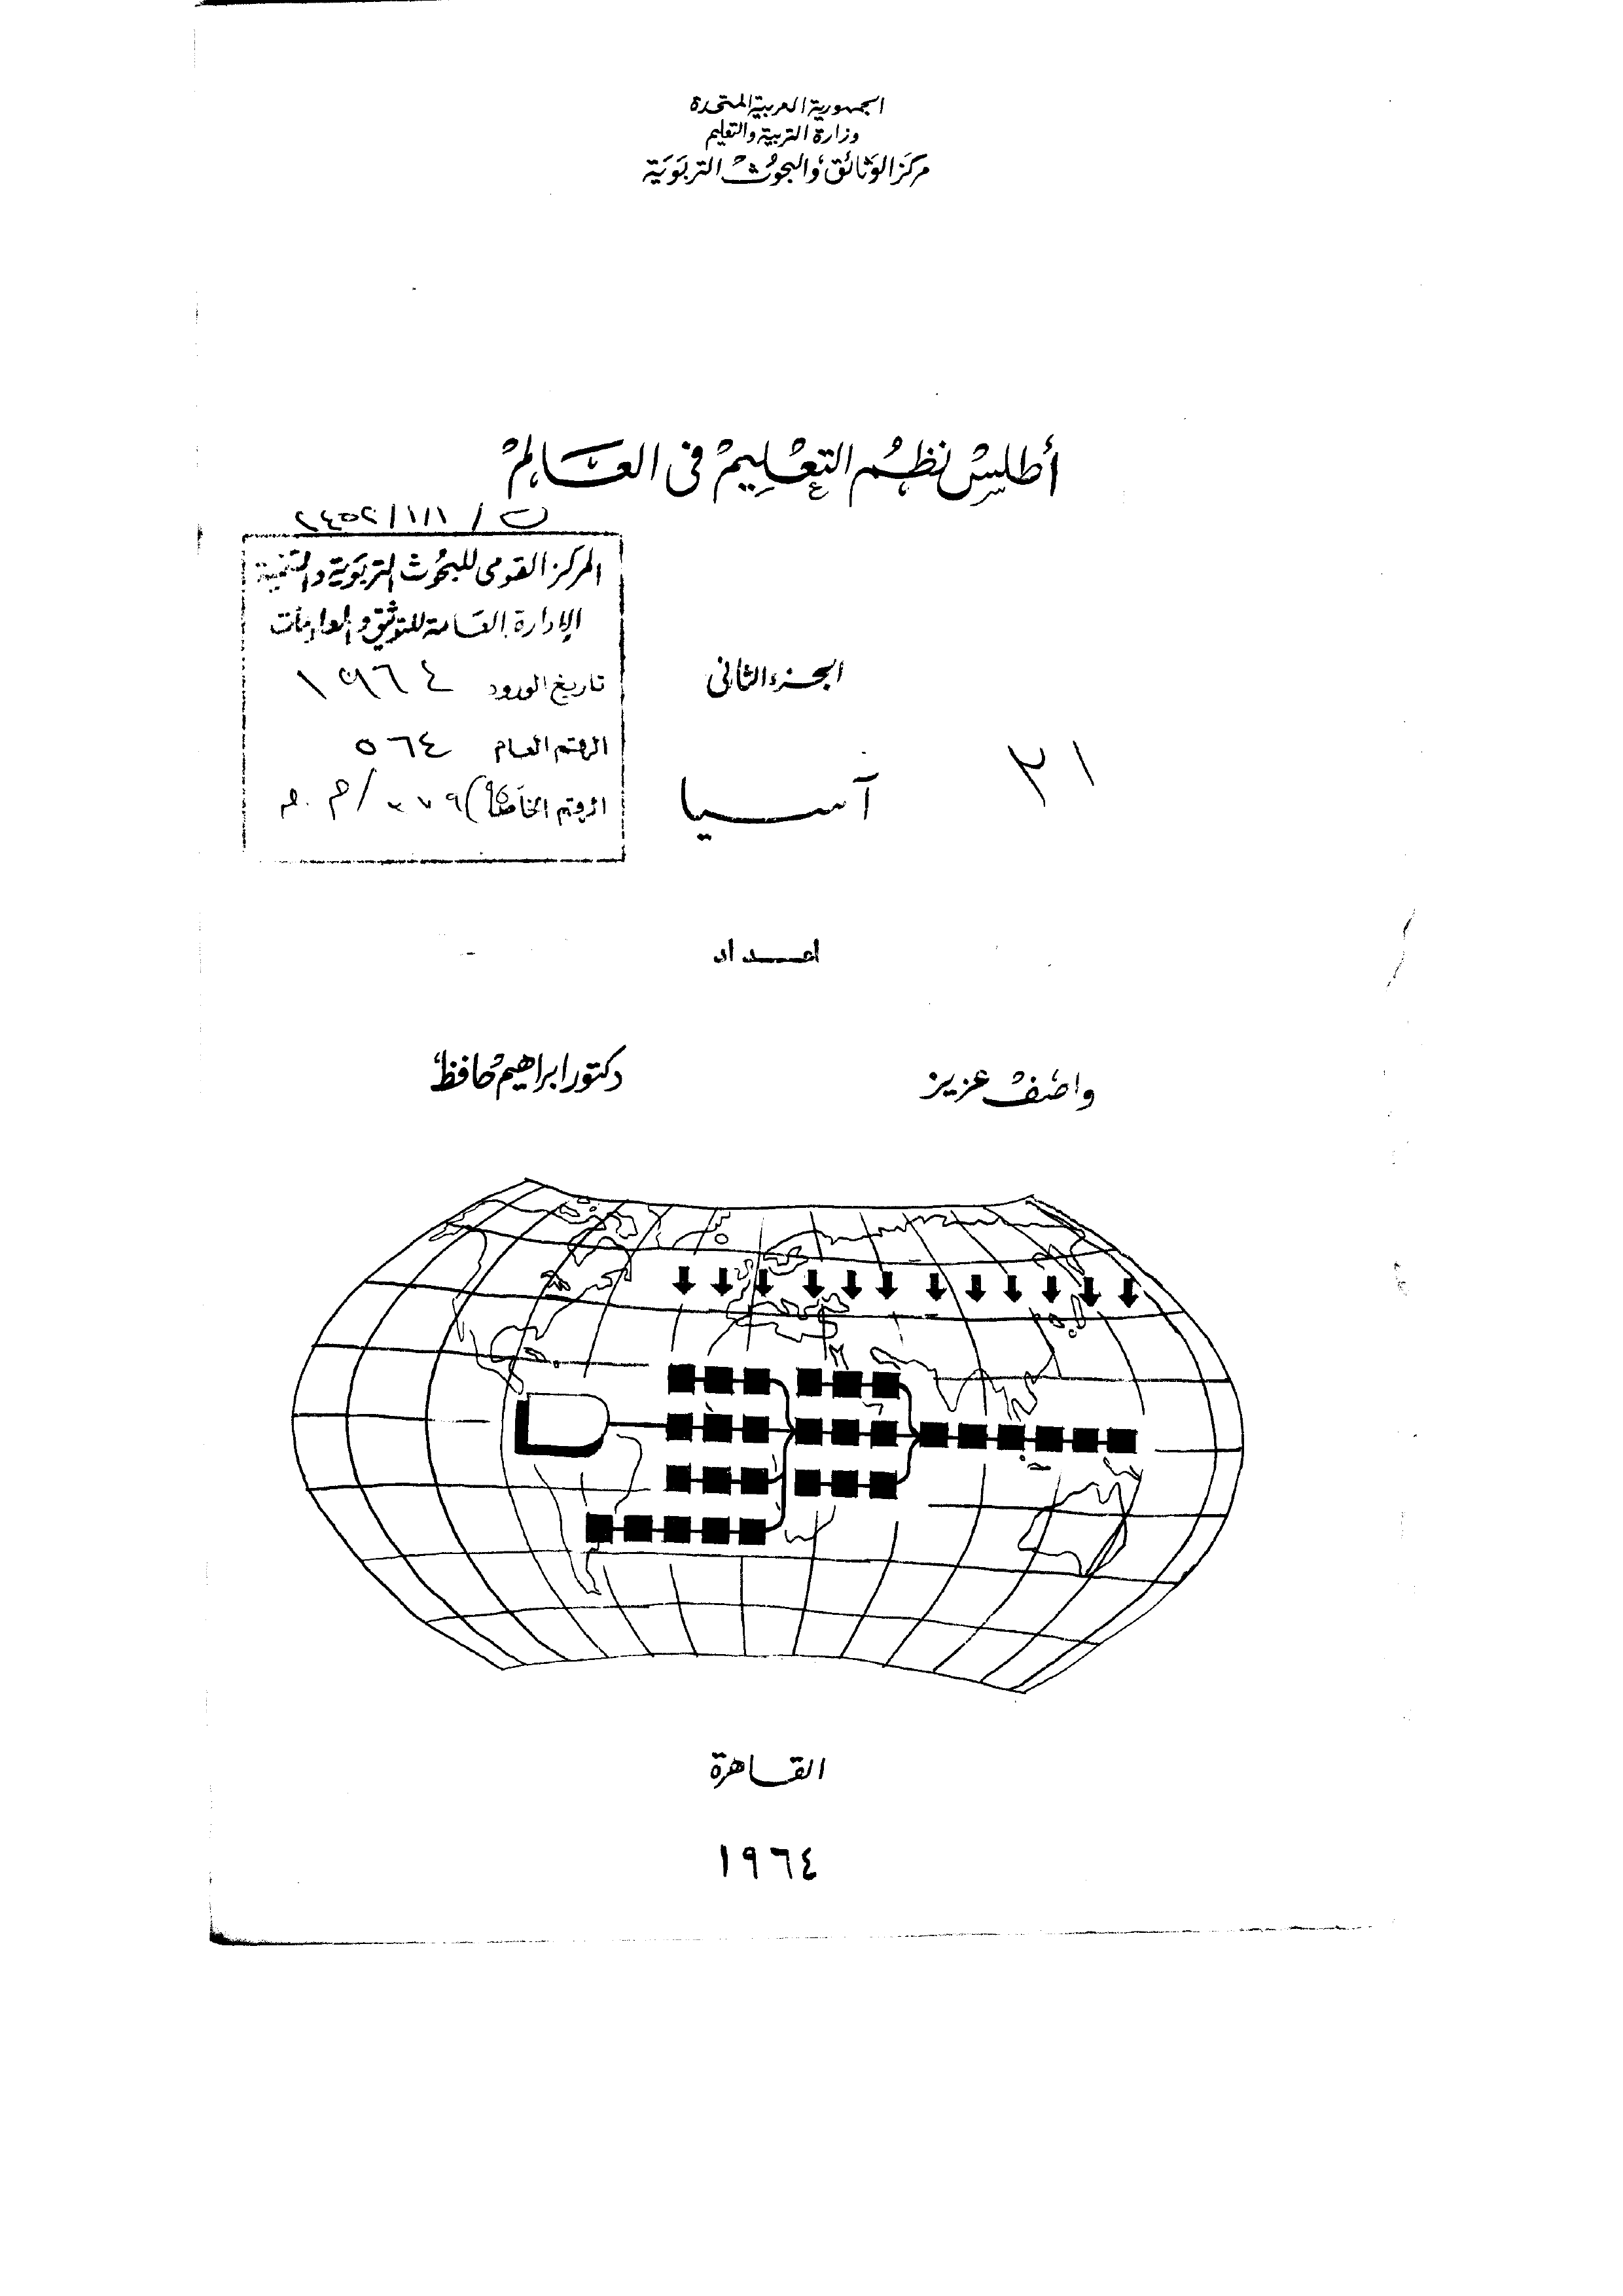 الجمهورية العربية المتحدة
وزارة التربية والتعليم
مركز الوثائق والبحوث التربوية
أطلس نظم التعليم فى العالم
المركز القومى للبحوث التربوية والتنمية
الإدارة العامة للتوثيق والمعلومات
تاريخ الورود ١٩٦٤
الرقم العام ٥٦٤
الرقم الخاص
الجزء الثانى
آسيا
٢١
اعداد
واصف عزيز
دكتور ابراهيم حافظ
القاهرة
١٩٦٤